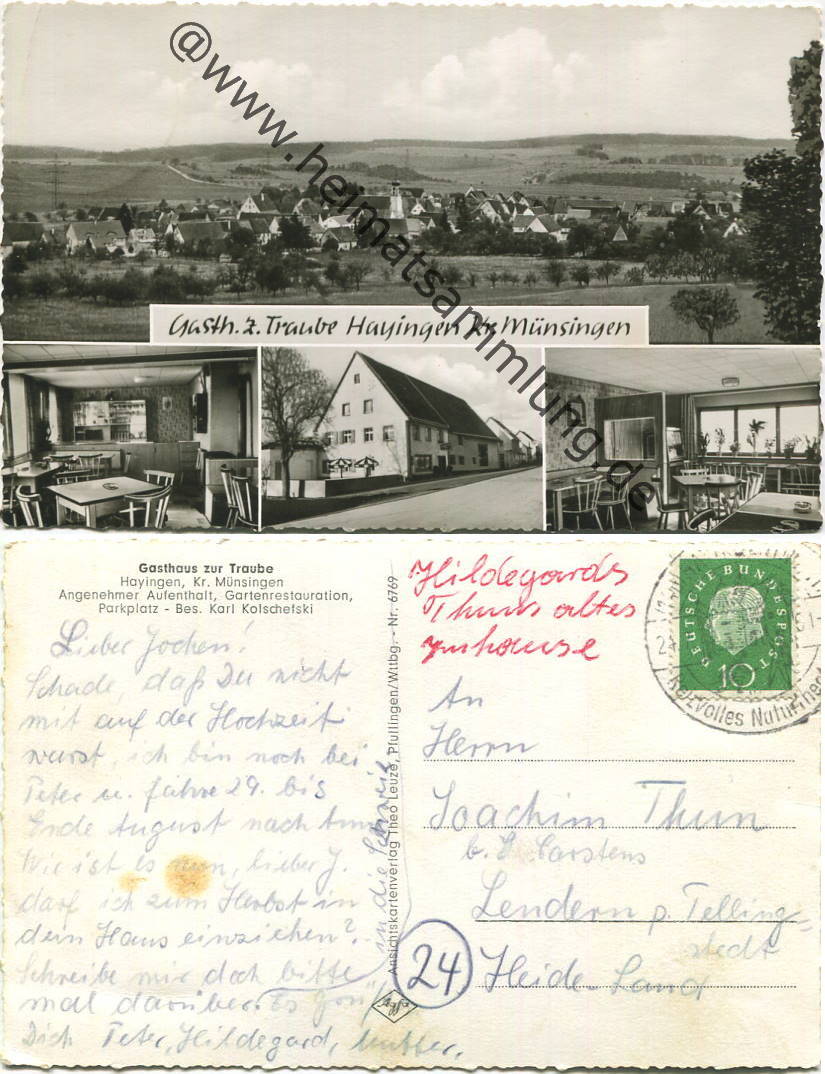 @www.heimatsammlung.de
Gasth. z. Traube Hayingen Kr. Münsingen
Gasthaus zur Traube
Hayingen, Kr. Münsingen
Angenehmer Aufenthalt, Gartenrestauration,
Parkplatz - Bes. Karl Kolschefski
Lieber Jochen!
Schade, daß Du nicht
mit auf der Hochzeit
warst, ich bin noch bei
Peter u. fahre 29. bis
Ende August nach
in die Schweiz
Wie ist es nun, lieber J.
darf ich zum Herbst in
dein Haus einziehen?
Schreibe mir doch bitte
mal darüber. Es
Dich Peter, Hildegard, Mutter.
Ansichtskartenverlag Theo Leuze, Pfullingen/Wttbg. - Nr. 6769
Agfa
Hildegards
Thuns altes
zuhause
DEUTSCHE BUNDESPOST
10
An
Herrn
Joachim Thun
b. Carstens
Lendern p. Telling-
stedt
24
Heide-Land